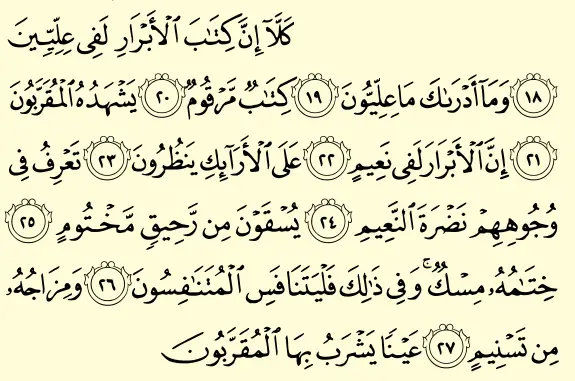 كَلَّآ إِنَّ كِتَٰبَ ٱلْأَبْرَارِ لَفِى عِلِّيِّينَ
١٨ وَمَآ أَدْرَىٰكَ مَا عِلِّيُّونَ ١٩ كِتَٰبٌ مَّرْقُومٌ ٢٠ يَشْهَدُهُ ٱلْمُقَرَّبُونَ
٢١ إِنَّ ٱلْأَبْرَارَ لَفِى نَعِيمٍ ٢٢ عَلَى ٱلْأَرَآئِكِ يَنظُرُونَ ٢٣ تَعْرِفُ فِى
وُجُوهِهِمْ نَضْرَةَ ٱلنَّعِيمِ ٢٤ يُسْقَوْنَ مِن رَّحِيقٍ مَّخْتُومٍ ٢٥
خِتَٰمُهُۥ مِسْكٌ ۚ وَفِى ذَٰلِكَ فَلْيَتَنَافَسِ ٱلْمُتَنَٰفِسُونَ ٢٦ وَمِزَاجُهُۥ
مِن تَسْنِيمٍ ٢٧ عَيْنًا يَشْرَبُ بِهَا ٱلْمُقَرَّبُونَ